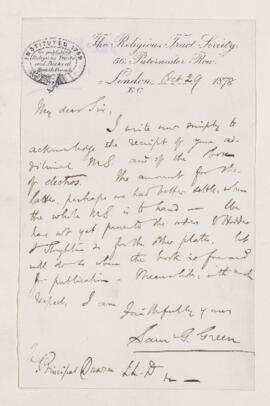 INSTITUTED 1799
The Religious Tract Society,
56, Paternoster Row,
London, Oct 29 1878
E.C.
My dear Sir,
I write now simply to
acknowledge the receipt of your ad-
ditional MS. and of the box
of electros. The amount for the
latter, perhaps we had better settle, when
the whole MS is to hand — We
has not yet presented the order of Hodder
& Stoughton for the other plates, but
will do so when the book is
for publication. Meanwhile, with much
respect, I am
Faithfully yours
Sam G. Green
Principal Dawson LL.D